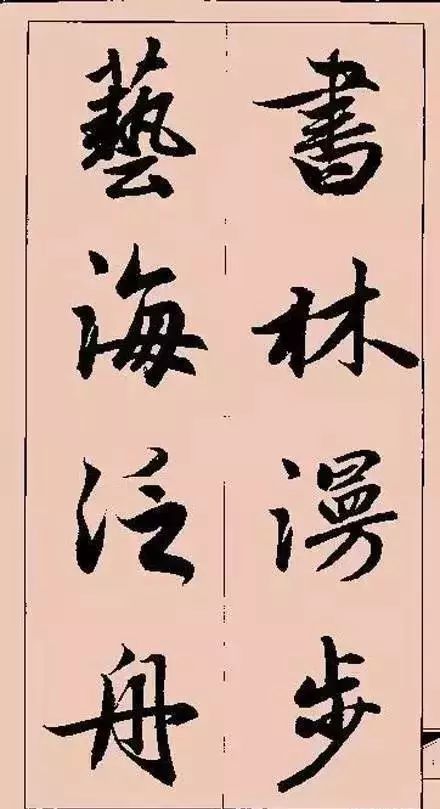 書林漫步
藝海泛舟